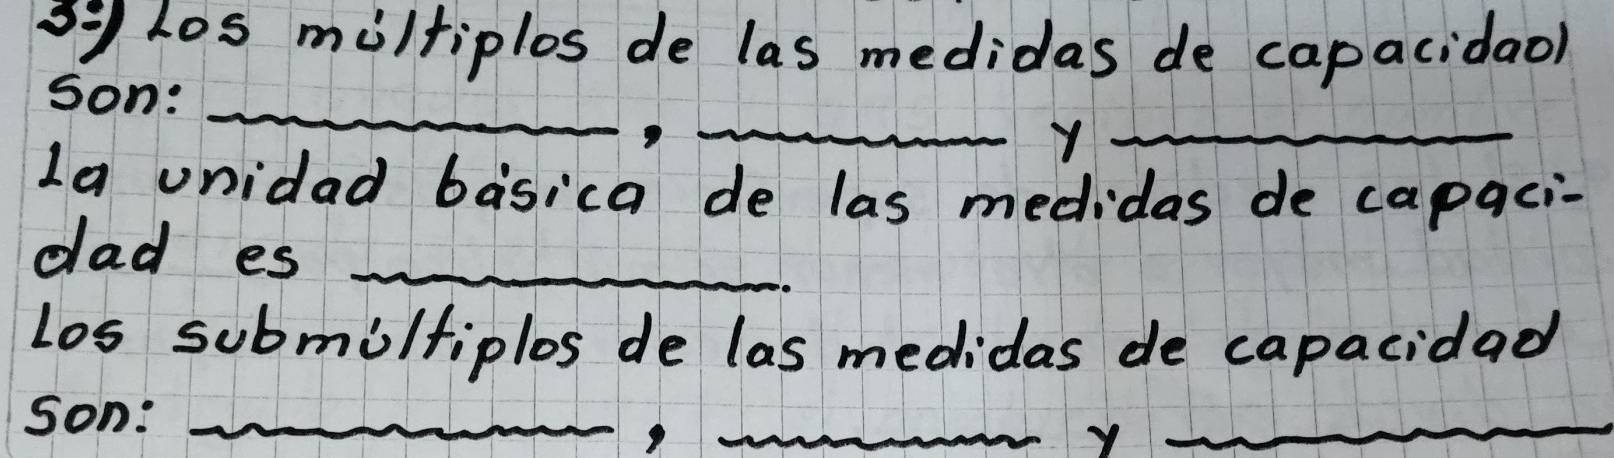 3=) Los múltiplos de las medidas de capacidad
son: ____________, _________ y ____________
La unidad básica de las medidas de capaci-
dad es ____________.
Los submúltiplos de las medidas de capacidad
son: ____________, _________ y ____________